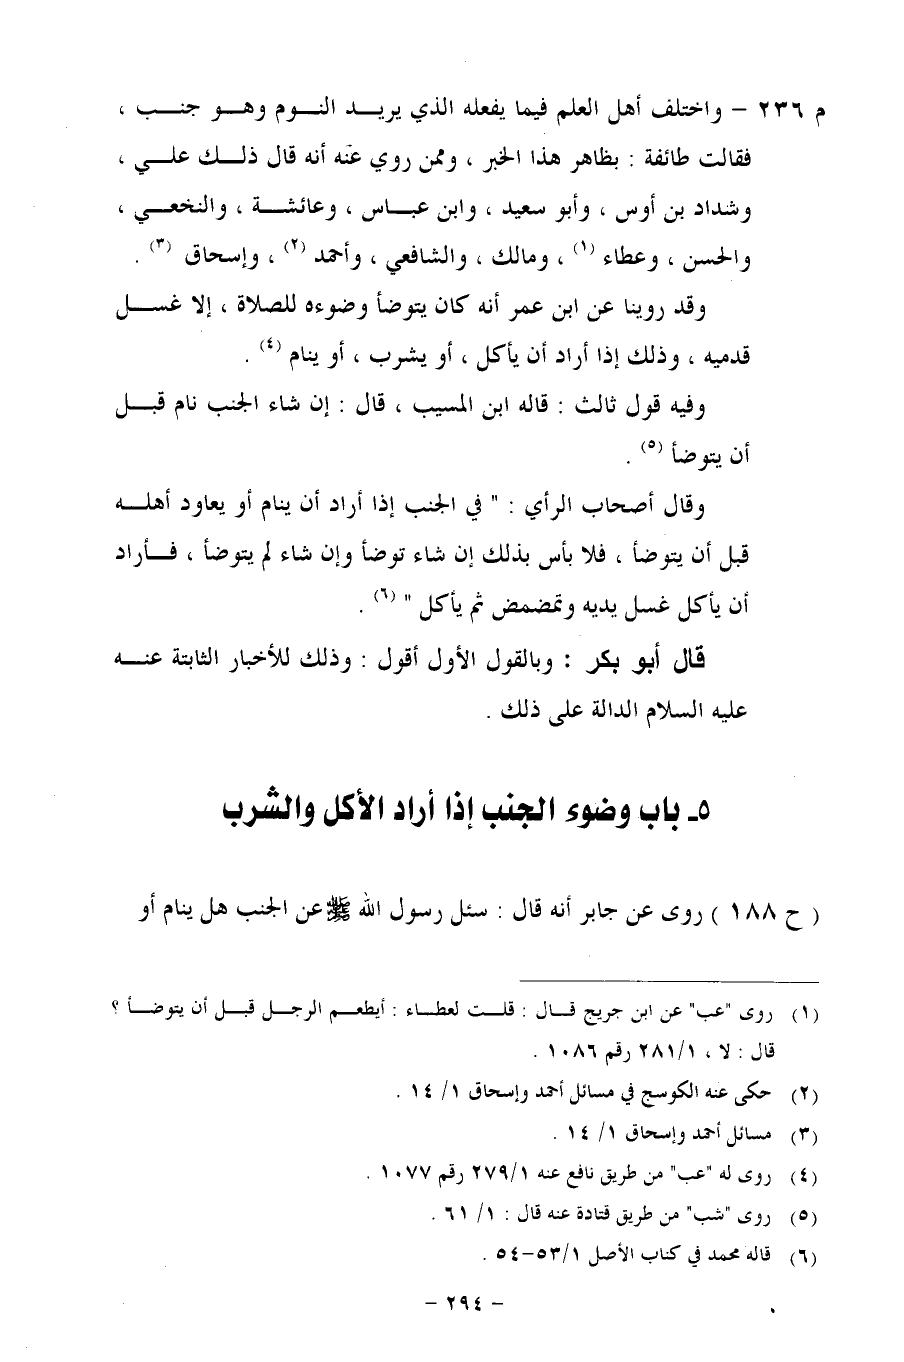 م ٢٣٦ – واختلف أهل العلم فيما يفعله الذي يريــد النــوم وهــو جنــب ،
فقالت طائفة : بظاهر هذا الخبر ، وممن روي عنه أنه قال ذلــك علــي ،
وشداد بن أوس ، وأبو سعيد ، وابن عبــاس ، وعائشــة ، والنخعــي ،
والحسن ، وعطاء (١) ، ومالك ، والشافعي ، وأحمد (٢) ، وإسحاق (٣) .
وقد روينا عن ابن عمر أنه كان يتوضأ وضوءه للصلاة ، إلا غســل
قدميه ، وذلك إذا أراد أن يأكل ، أو يشرب ، أو ينام (٤) .
وفيه قول ثالث : قاله ابن المسيب ، قال : إن شاء الجنب نام قبــل
أن يتوضأ (٥) .
وقال أصحاب الرأي : " في الجنب إذا أراد أن ينام أو يعاود أهلــه
قبل أن يتوضأ ، فلا بأس بذلك إن شاء توضأ وإن شاء لم يتوضأ ، فــأراد
أن يأكل غسل يديه وتمضمض ثم يأكل " (٦) .
قال أبو بكر : وبالقول الأول أقول : وذلك للأخبار الثابتة عنــه
عليه السلام الدالة على ذلك .
٥ـ باب وضوء الجنب إذا أراد الأكل والشرب
( ح ١٨٨ ) روى عن جابر أنه قال : سئل رسول الله ﷺ عن الجنب هل ينام أو
(١) روى "عب" عن ابن جريج قــال : قلــت لعطــاء : أيطعــم الرجــل قبــل أن يتوضــأ ؟
قال : لا ، ٢٨١/١ رقم ١٠٨٦ .
(٢) حكى عنه الكوسج في مسائل أحمد وإسحاق ١/ ١٤ .
(٣) مسائل أحمد وإسحاق ١/ ١٤ .
(٤) روى له "عب" من طريق نافع عنه ٢٧٩/١ رقم ١٠٧٧ .
(٥) روى "شب" من طريق قتادة عنه قال : ١/ ٦١ .
(٦) قاله محمد في كتاب الأصل ٥٣/١-٥٤ .
– ٢٩٤ –